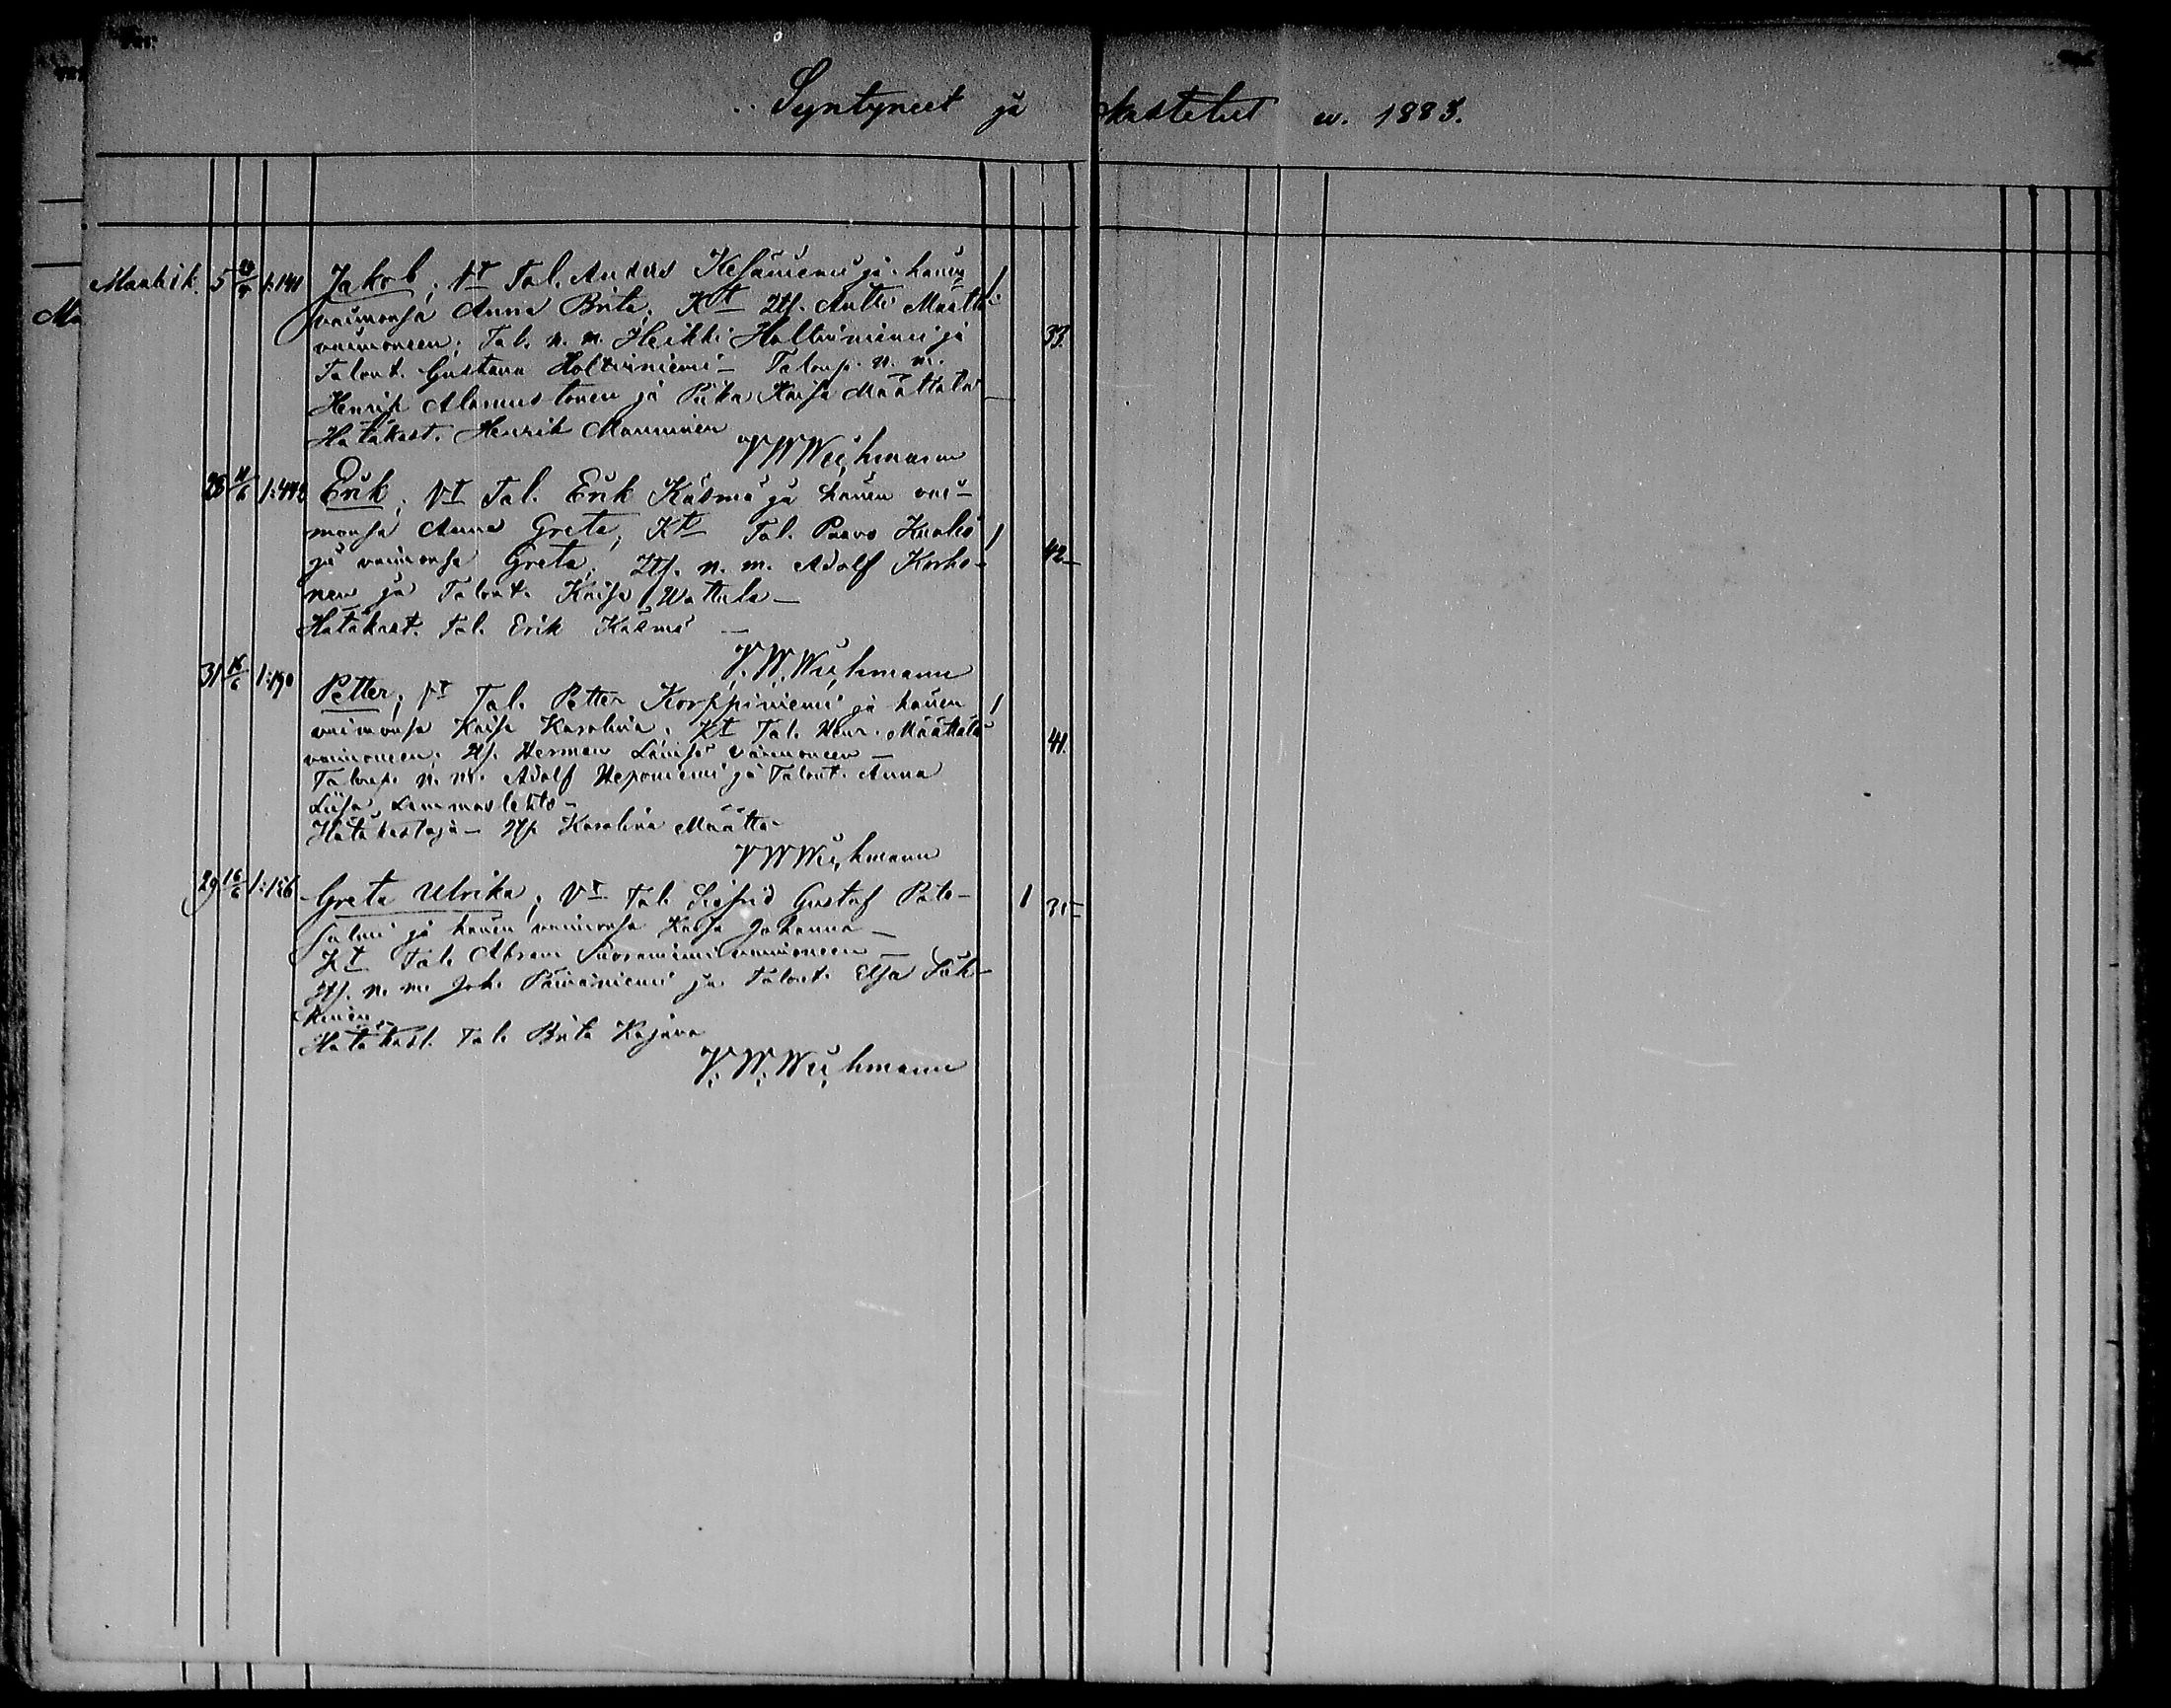 Syntyneet ja kastetut w. 1883.
Maalisk. 5 1:141 Jakob; Vt Tal. Anders Kesäniemi ja hänen
vaimonsa Anna Brita; Kt Its. Antti Määttä
vaimoneen; Tal. n. m. Heikki Holtinniemi ja 33.
Talont. Gustava Holtinniemi – Talonp. n. m.
Henrik Alamustonen ja Piika Kaisa Määttälä
Hätäkast. Henrik Manninen
V W Wichmann
28 Erik; Vt Tal. Erik Käsmä ja hänen vai-
monsa Anna Greta; Kt Tal. Paavo 1
ja vaimonsa Greta; Its. n. m. Adolf Korho- 42
nen ja Talont. Kaisa Wattula –
Hätäkast. Tal. Erik Käsmä –
V. W. Wichmann
31 16/6 1:190 Petter; Vt Tal. Petter Korppiniemi ja hänen 1
vaimonsa Kaisa Karolina. Kt Tal. Henr. Määttälä
vaimoneen; Its. Herman vaimoneen – 41.
Talonp. n. m. Adolf Heponiemi ja Talont. Anna
Liisa Lammaslehto –
Hätäkastaja – Its Karolina Määttä
V W Wichmann
29 16/6 Greta Ulrika; Vt Tal. Sigfrid Gustaf Pato- 1 31
salmi ja hänen vaimonsa Kaisa Johanna –
Kt Tal. Abram vaimoneen –
Its. n. m. Joh. Päiväniemi ja Talont. Elsa
Hätäkast. Tal. Brita Kajava
V. W. Wichmann